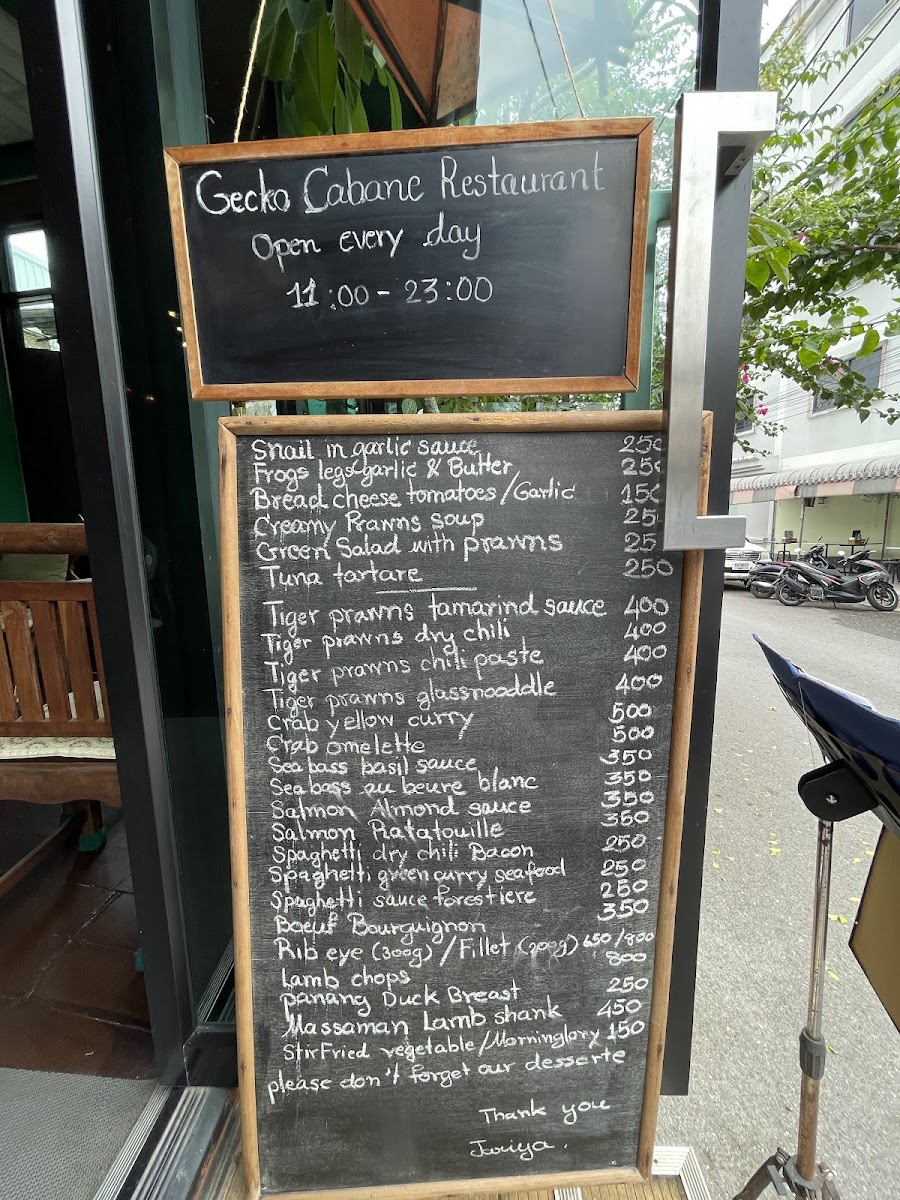 Gecko Cabane Restaurant
Open every day
11:00 - 23:00
Snail in garlic sauce 250
Frogs legs garlic & Butter 250
Bread cheese tomatoes/Garlic 150
Creamy Prawns soup 25
Green Salad with prawns 25
Tuna tartare 250
Tiger prawns tamarind sauce 400
Tiger prawns dry chili 400
Tiger prawns chili paste 400
Tiger prawns glassnooddle 400
Crab yellow curry 500
Crab omelette 500
Sea bass basil sauce 350
Sea bass au beure blanc 350
Salmon Almond sauce 350
Salmon Ratatouille 350
Spaghetti dry chili Bacon 250
Spaghetti green curry seafood 250
Spaghetti sauce forestiere 250
Boeuf Bourguignon 350
Rib eye (300g) / Fillet (200g) 650/800
Lamb chops 800
panang Duck Breast 250
Massaman Lamb shank 450
StirFried vegetable/Morninglory 150
please don't forget our desserte
Thank you
Jariya.